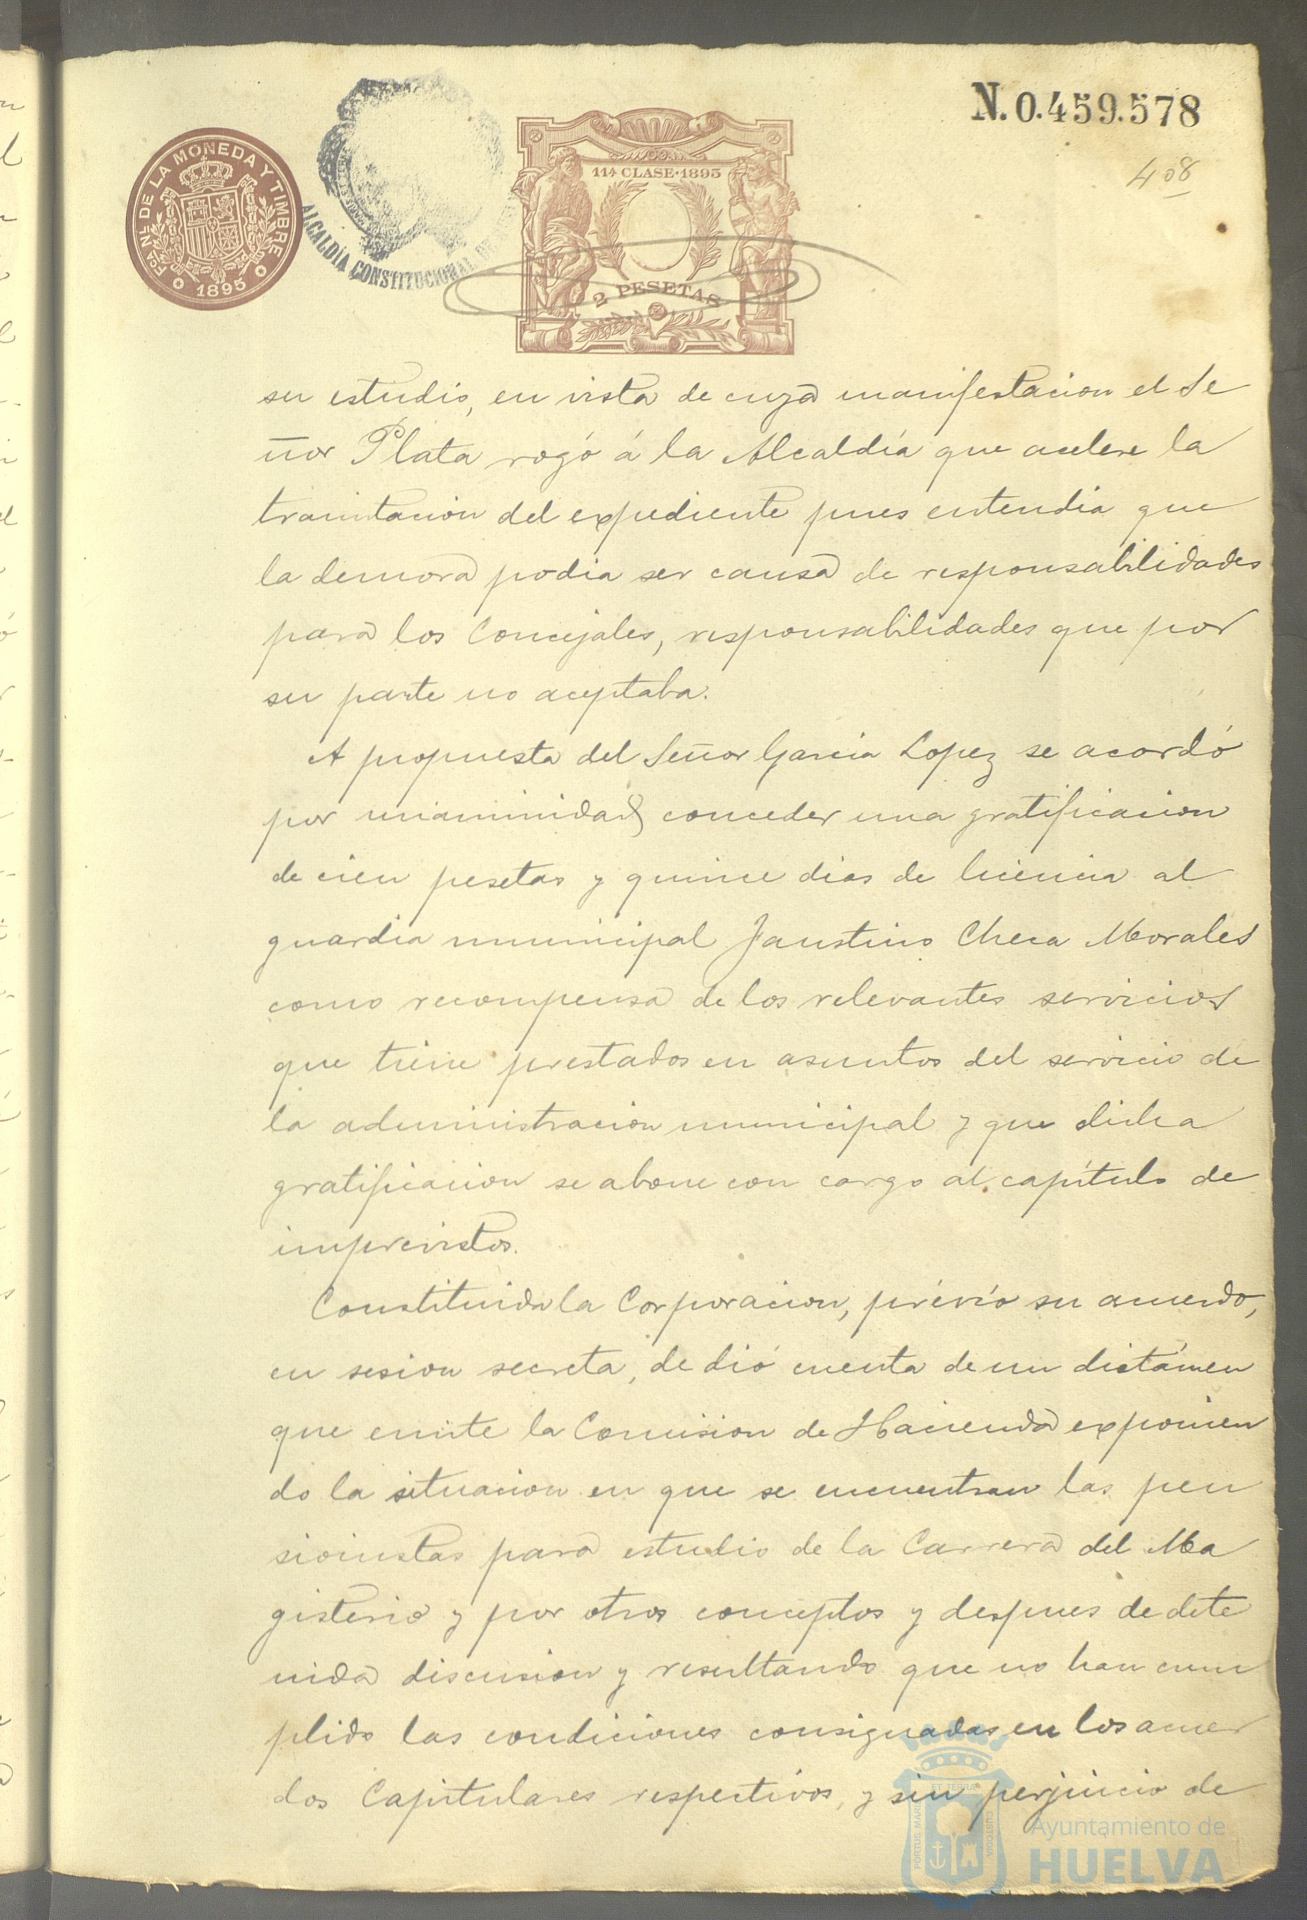 N. 0.459.578
408
FCA NL DE LA MONEDA Y TIMBRE
1895
ALCALDÍA CONSTITUCIONAL DE
11ª CLASE·1895
2 PESETAS
su estudio, en vista de cuya manifestacion el Se
ñor Plata rogó á la Alcaldía que acelere la
tramitacion del expediente pues entendia que
la demora podia ser causa de responsabilidades
para los Concejales, responsabilidades que por
su parte no aceptaba.
A propuesta del Señor Garcia Lopez se acordó
por unanimidad conceder una gratificacion
de cien pesetas y quince dias de licencia al
guardia municipal Faustino Checa Morales
como recompensa de los relevantes servicios
que tiene prestados en asuntos del servicio de
la administracion municipal y que dicha
gratificacion se abone con cargo al capítulo de
imprevistos.
Constituida la Corporacion, prévio su acuerdo,
en sesion secreta, de dió cuenta de un dictámen
que emite la Comision de Hacienda exponien
do la situacion en que se encuentran las pen
sionistas para estudio de la Carrera del Ma
gisterio y por otros conceptos y despues de dete
nida discusion y resultando que no han cum
plido las condiciones consignadas en los acuer
dos Capitulares respectivos, y sin perjuicio de
PORTUS MARIS ET TERRAE CUSTODIA
Ayuntamiento de
HUELVA